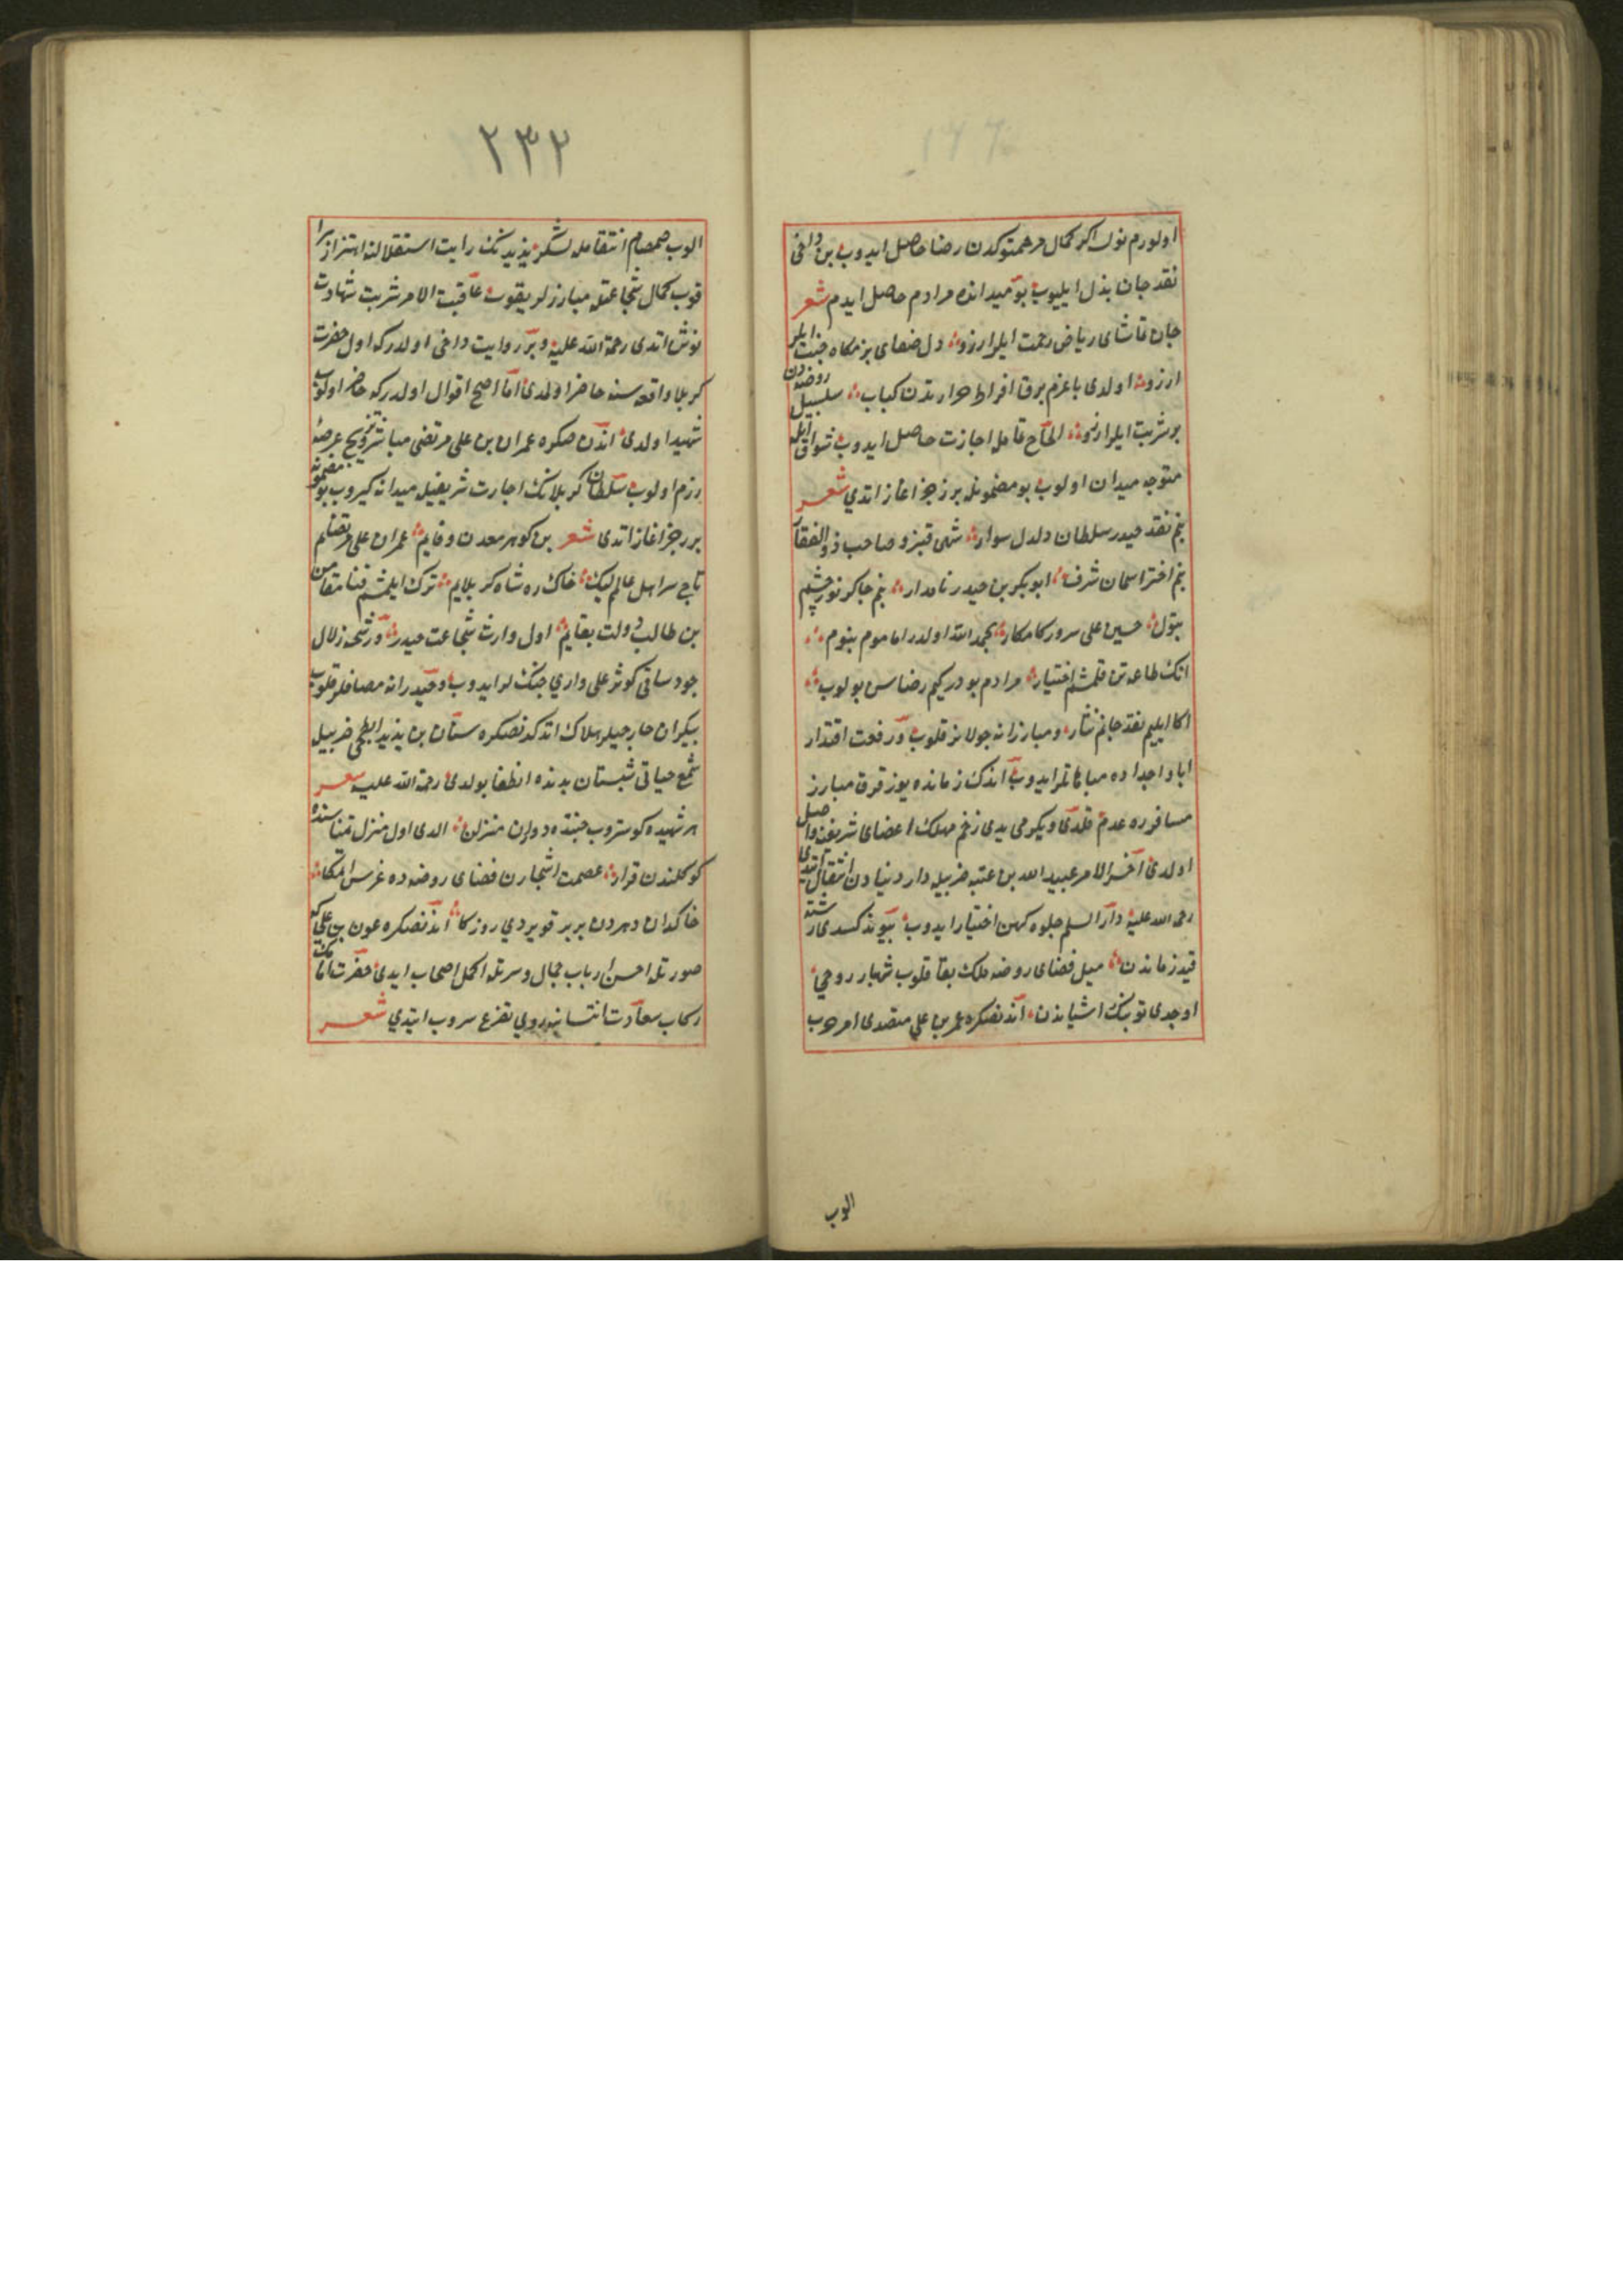 اولورم نولا اکر کمال مرحمتوکدن رضا حاصل ایدوب بن داخی
نقد جان بذل ایلیوب بو میدانده مرادم حاصل ایدم شعر
جان تماشای ریاض رحمت ایلر ارزو دل صفای بزمکاه جنت ایلر
ارزو اولدی باغرم برق افراط حرارتدن کباب سلسبیل روضه دن
بر شربت ایلر ارزو الحاح تمامله اجازت حاصل ایدوب شوق ایله
متوجه میدان اولوب بو مضمونله بر رجز اغاز اتدی شعر
بنم نقد حیدر سلطان دلدل سوار شه قنبر و صاحب ذو الفقار
بنم اختر اسمان شرف ابو بکر بن حیدر نامدار بنم چاکر نور چشم
بتول حسین علی سرور کامکار بحمد الله اولدر امامم بنوم
انک طاعتن قلمشم اختیار مرادم بودر کیم رضاسن بولوب
اکا ایلیم نقد جانم نثار و مبارزانه جولانلر قلوب و رفعت اقتدار
ابا و اجداده مباهاتلر ایدوب اندک زمانده یوز قرق مبارز
مسافر ره عدم قلدی و یکرمی یدی زخم مهلک اعضای شریفنه واصل
اولدی آخر الامر عبید الله بن عتبه ضربیله دار دنیادن انتقال ایتدی
رحمة الله علیه دار السلم جلوه کهن اختیار ایدوب پیوند کسدی رشته
قید زماندن میل فضای روضه ملک بقا قلوب شهباز روحی
اوچدی توبنک اشیانندن اندنصکره عمر بن علی متصدی امر حرب
الوب
۲۳۲
الوب صمصام انتقامله لشکر یزیدنک رایت استقلالنه اهتزاز برا
قوب کمال شجاعتله مبارزلر یقوب عاقبت الامر شربت شهادت
نوش اتدی رحمة الله علیه و بر روایت داخی اولدرکه اول حضرت
کربلا واقعه سنه حاضر اولمدی اما اصح اقوال اولدرکه حاضر اولوب
شهید اولدی اندن صکره عمران بن علی مرتضی مباشر ترویج عرصه
رزم اولوب سلطان کربلانک اجازت شریفیله میدانه کیروب بو مضمونه
بر رجز اغاز اتدی شعر بن کوهر معدن وفایم عمران علی مرتضایم
تاج سر اهل عالم لیک خاک ره شاه کربلایم ترک ایلمشم فنا متاعن
بن طالب دولت بقایم اول وارث شجاعت حیدر و رشحه زلال
جود ساقی کوثر علی واری جنکلر ایدوب و حیدرانه مصافلر قلوب
بیکران خارجیلر هلاک اتدکدنصکره سنان بن یزید ابطحی ضربیله
شمع حیاتی شبستان بدنده انطفا بولدی رحمة الله علیه شعر
هر شهیده کوستروب جنتده دوران منزلن الدی اول منزل تمناسنده
کوکلندن قرار عصمت اشجارن فضای روضه ده غرس اتمکا
خاکدان دهردن بر بر قوپردی روزکار اندنصکره عون بن علی که
صورتله احسن ارباب جمال و سیرتله اکمل اصحاب ایدی حضرت امامک
رکاب سعادت انتسابنه روی تضرع سروب ایتدی شعر